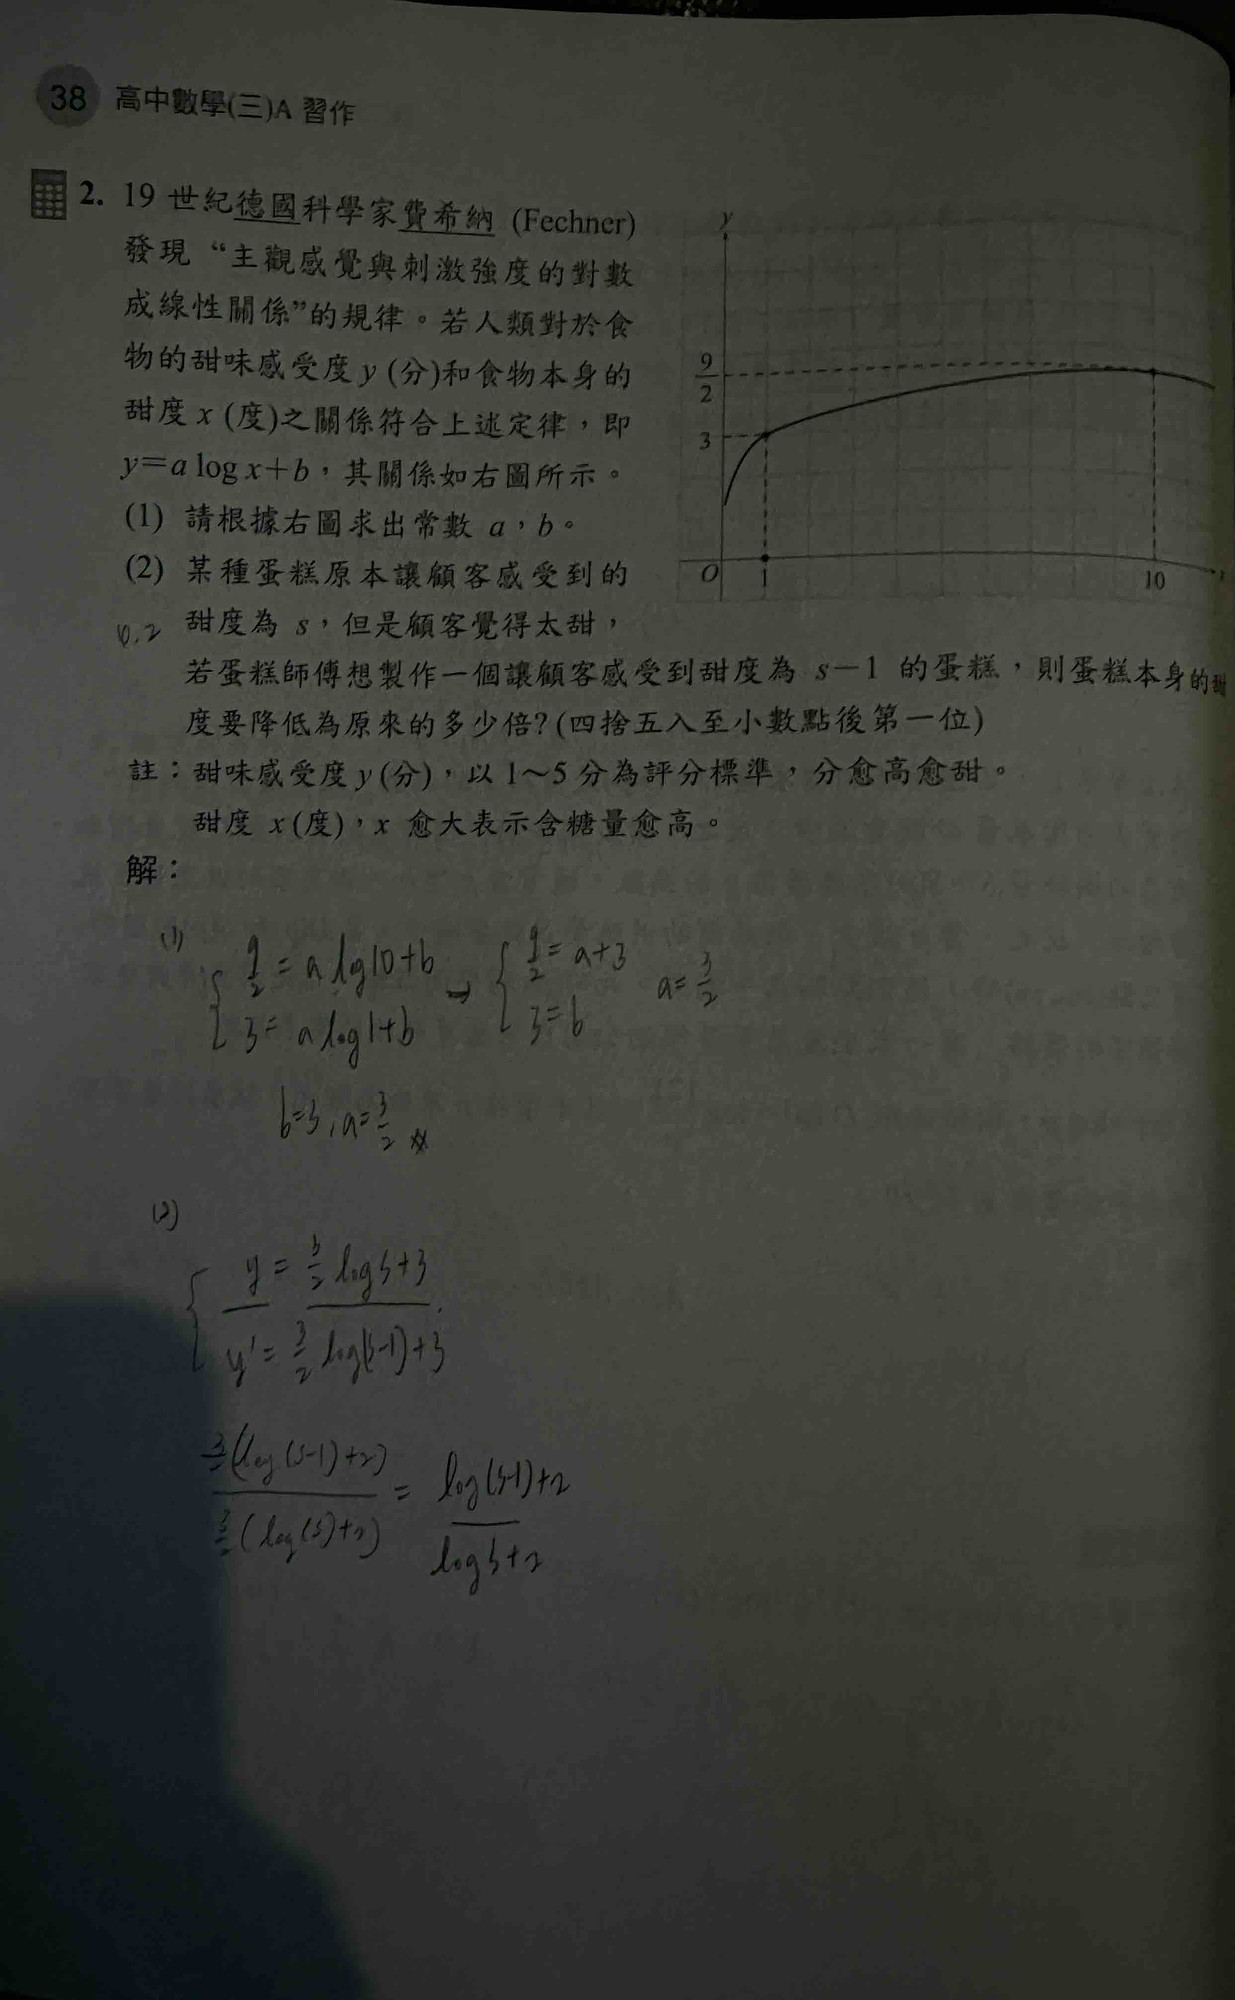 38 高中數學(三)A 習作
2. 19 世紀德國科學家費希納 (Fechner)
發現“主觀感覺與刺激強度的對數
成線性關係”的規律。若人類對於食
物的甜味感受度 y (分)和食物本身的
甜度 x (度)之關係符合上述定律，即
y=a log x+b，其關係如右圖所示。
(1) 請根據右圖求出常數 a，b。
(2) 某種蛋糕原本讓顧客感受到的
甜度為 s，但是顧客覺得太甜，
若蛋糕師傅想製作一個讓顧客感受到甜度為 s-1 的蛋糕，則蛋糕本身的甜
度要降低為原來的多少倍?(四捨五入至小數點後第一位)
註：甜味感受度 y (分)，以 1～5 分為評分標準，分愈高愈甜。
甜度 x (度)，x 愈大表示含糖量愈高。
解：
y
9/2
3
O 1 10 x
0.2
(1)
9/2 = a log10+b → 9/2 = a+3 a=3/2
3= a log1+b 3=b
b=3, a=3/2
(2)
y = 3/2 log s+3
y' = 3/2 log(s-1)+3
3/2(log(s-1)+2) / 3/2(log(s)+2) = log(s-1)+2 / log s+2